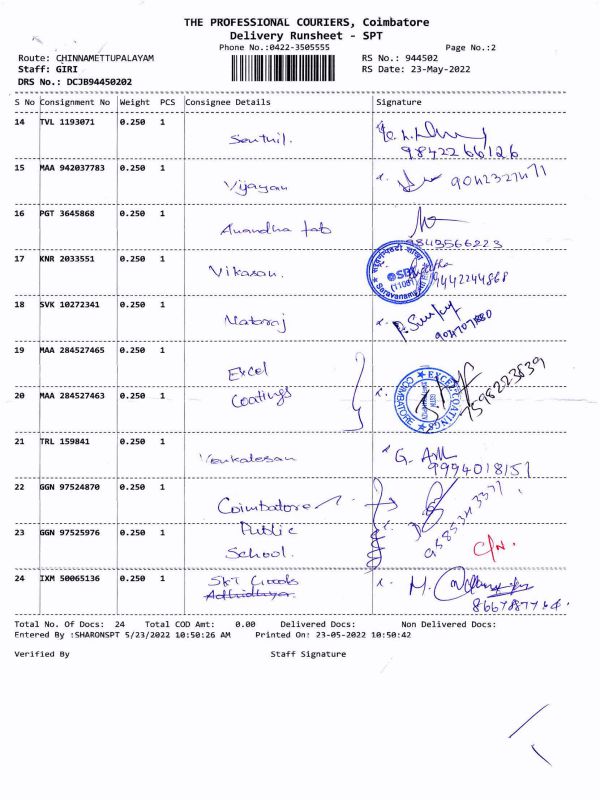 THE PROFESSIONAL COURIERS, Coimbatore
Delivery Runsheet - SPT
Phone No.:0422-3505555 Page No.:2
Route: CHINNAMETTUPALAYAM RS No.: 944502
Staff: GIRI RS Date: 23-May-2022
DRS No.: DCJB94450202
S No Consignment No Weight PCS Consignee Details Signature
14 TVL 1193071 0.250 1
Senthil.
9842266126
15 MAA 942037783 0.250 1
Vijayan
16 PGT 3645868 0.250 1
Anandha fab
9843566223
17 KNR 2033551 0.250 1
Vikasan. SBI 9442244868
(11061)
18 SVK 10272341 0.250 1
Nataraj
19 MAA 284527465 0.250 1
Excel
EXCEL COATINGS
COIMBATORE
20 MAA 284527463 0.250 1
Coatings
21 TRL 159841 0.250 1
Venkatesan
9994018157
22 GGN 97524870 0.250 1
Coimbatore
23 GGN 97525976 0.250 1
Public
School. C/N.
24 IXM 50065136 0.250 1
SKT Goods
Total No. Of Docs: 24 Total COD Amt: 0.00 Delivered Docs: Non Delivered Docs:
Entered By :SHARONSPT 5/23/2022 10:50:26 AM Printed On: 23-05-2022 10:50:42
Verified By Staff Signature